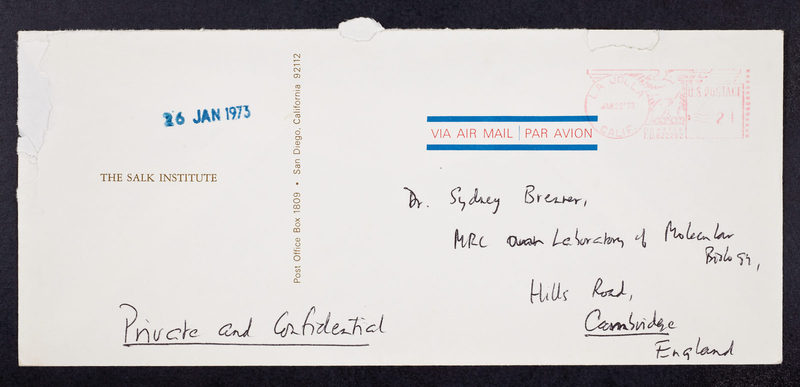 26 JAN 1973
THE SALK INSTITUTE
Post Office Box 1809 • San Diego, California 92112
VIA AIR MAIL | PAR AVION
LA JOLLA
CALIF.
U.S. POSTAGE
21
Dr. Sydney Brenner,
MRC Laboratory of Molecular
Biology,
Hills Road,
Cambridge
England
Private and Confidential